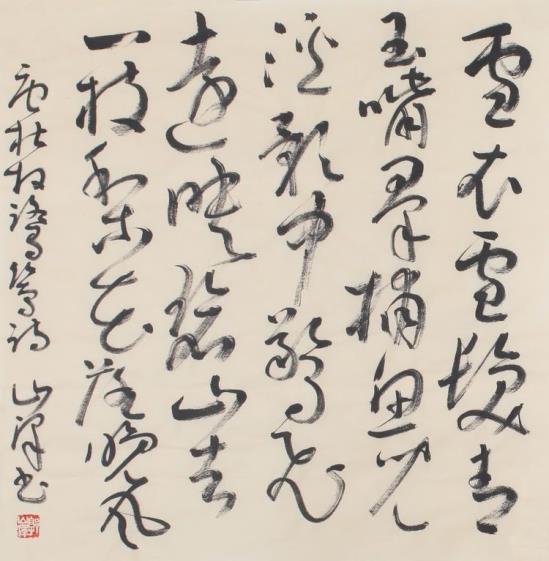 雪衣雪髮青
玉嘴羣捕魚兒
溪影中驚飛
遠映碧山去
一枝梨花落晚風
唐杜牧鷺鷥詩 山書